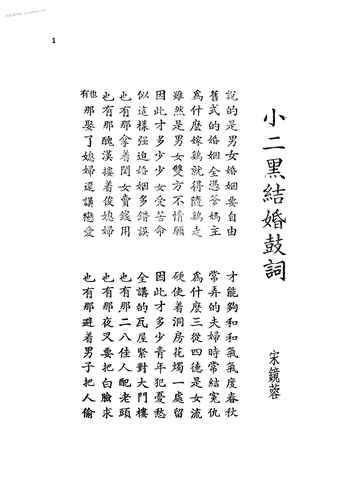 1
小二黑結婚鼓詞
宋鏡蓉
說的是男女婚姻要自由
才能夠和和氣氣度春秋
舊式的婚姻全憑爹媽主
常弄的夫婦時常結寃仇
爲什麼嫁鷄就得隨鷄走
爲什麼三從四德是女流
雖然是男女雙方不情願
硬使着洞房花燭一處留
因此才多少少女受苦命
因此才多少青年犯憂愁
似這樣强迫婚姻多錯誤
全講的瓦屋緊對大門樓
也有那拿着閨女賣錢用
也有那二八佳人配老頭
也有那醜漢摟着俊媳婦
也有那夜叉要把白臉求
也有那娶了媳婦還講戀愛
也有那避着男子把人偷